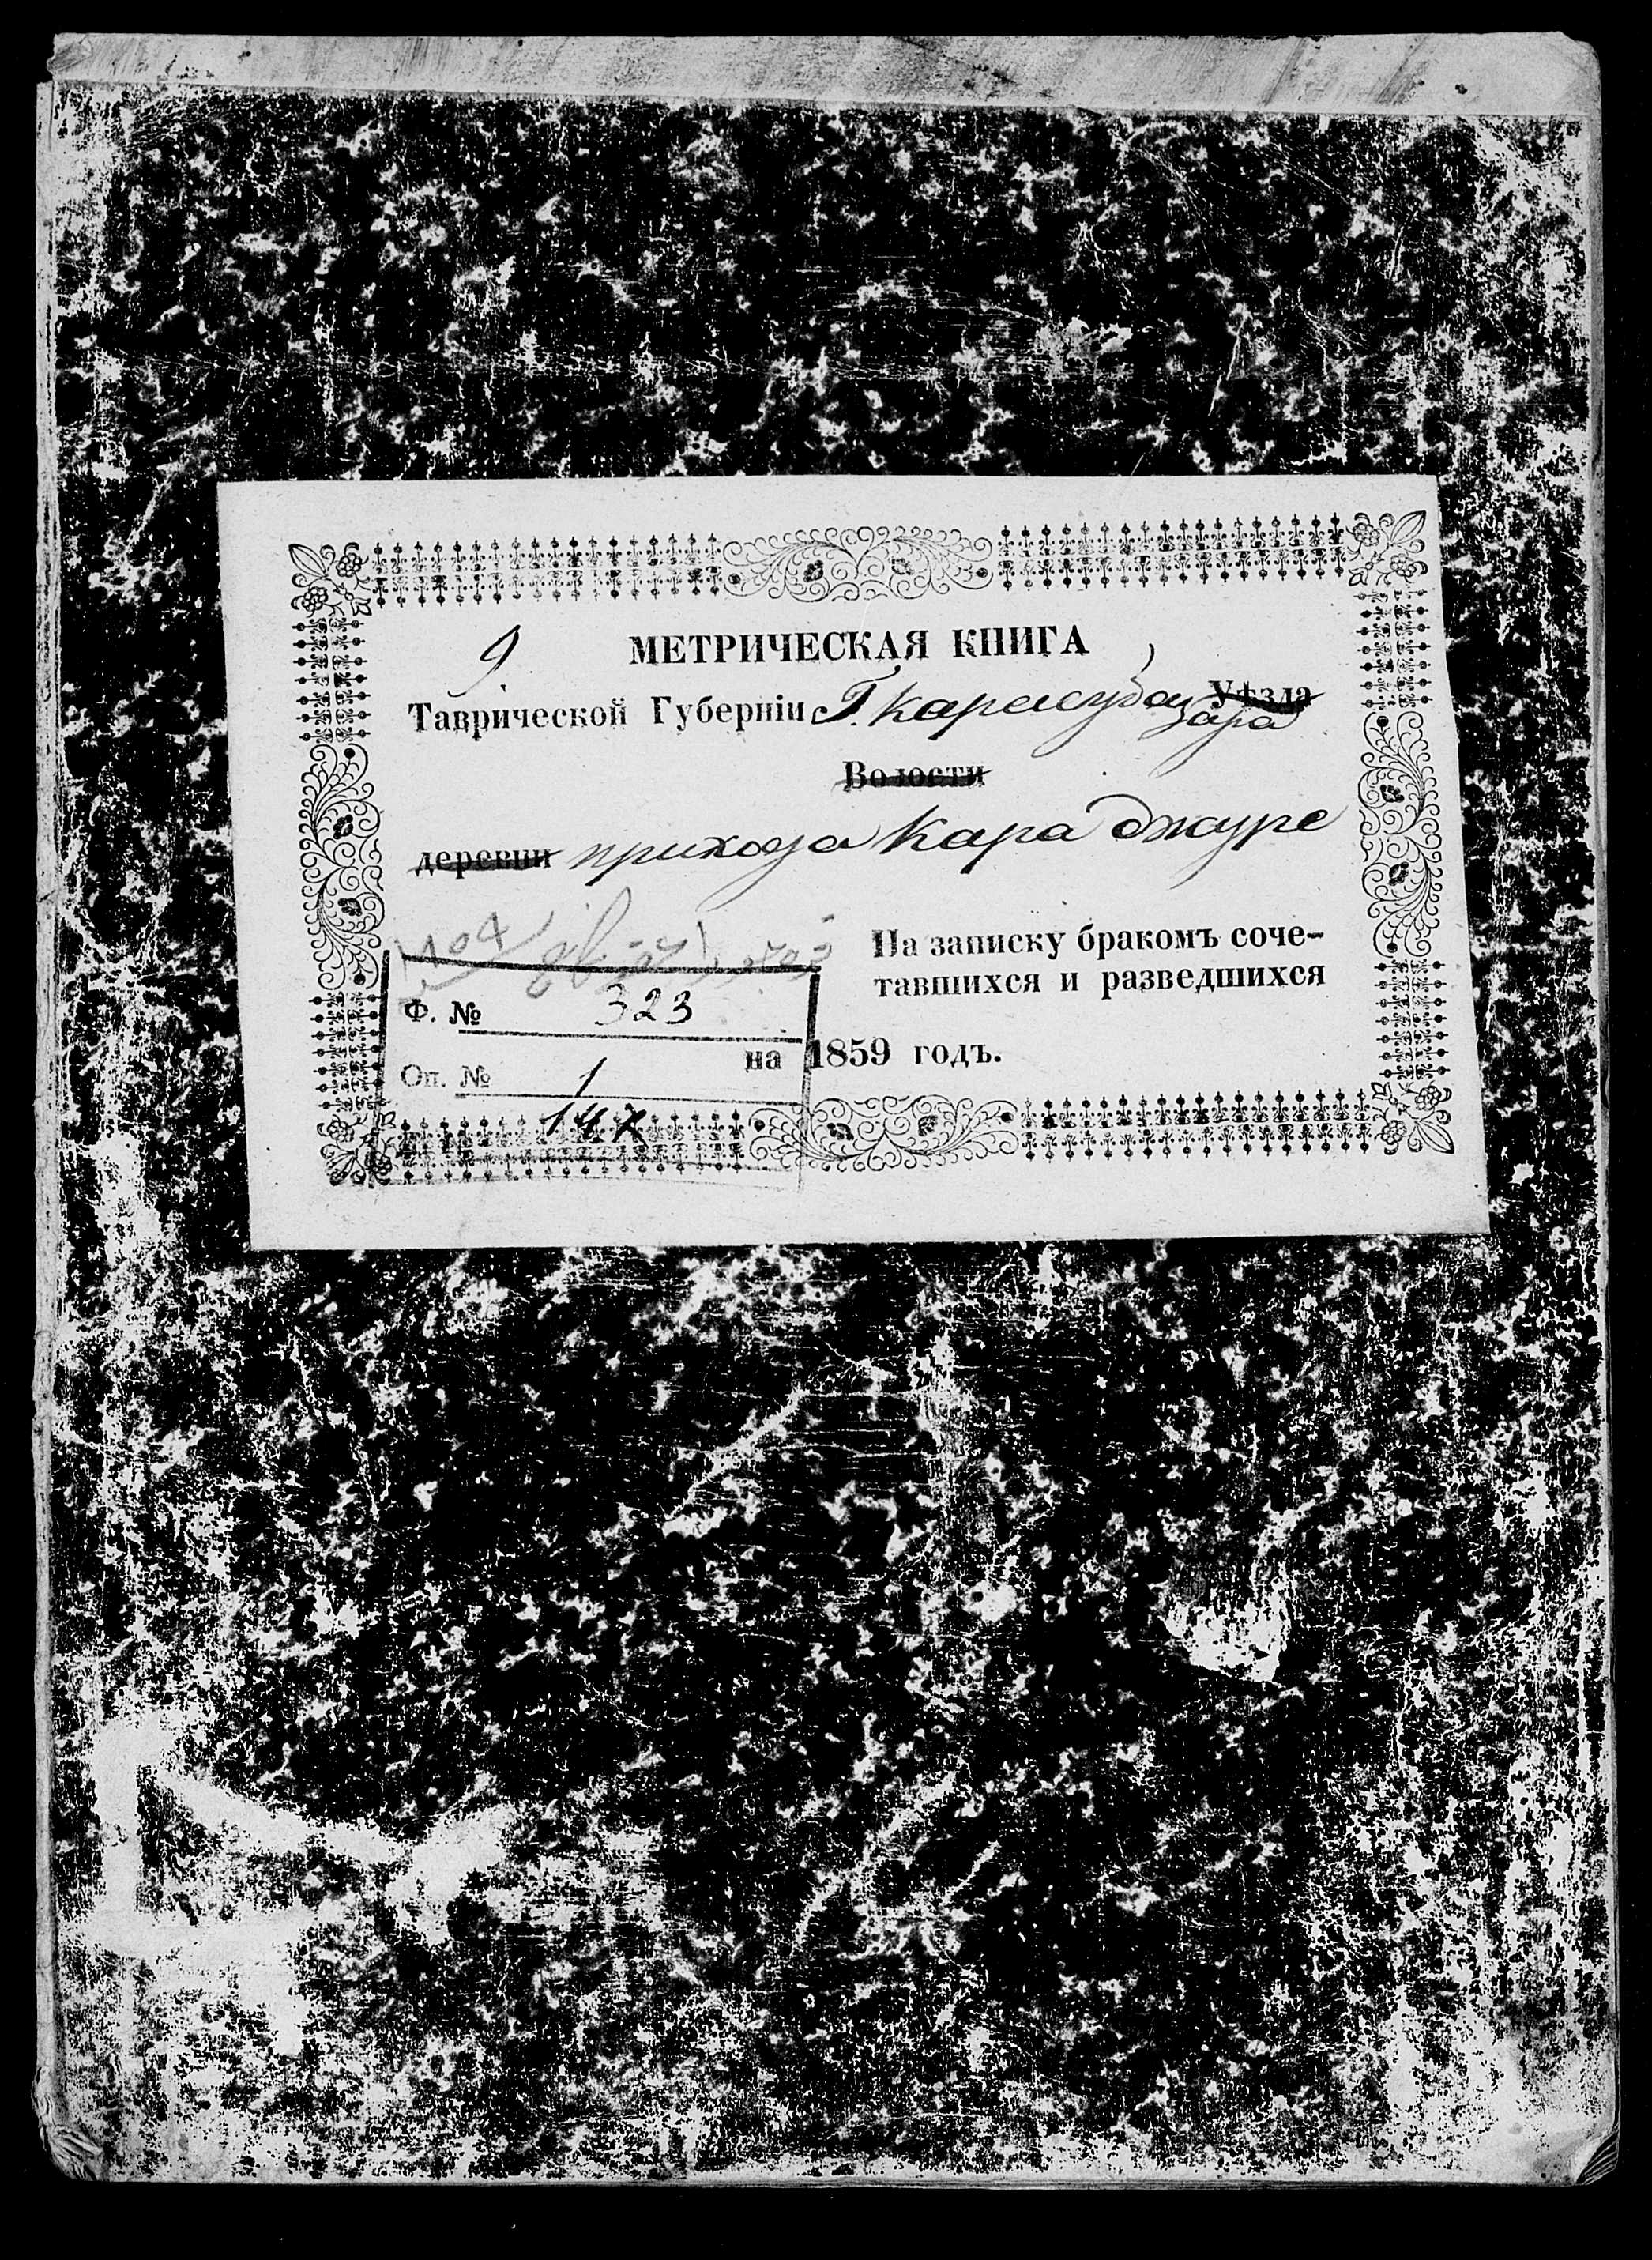 9 МЕТРИЧЕСКАЯ КНИГА
Таврической Губерніи Г. Карасубазара Уѣзда
Волости
деревни прихода Кара джуре
На записку бракомъ соче-
тавшихся и разведшихся
Ф. № 323
на 1859 годъ.
Оп. № 1
147